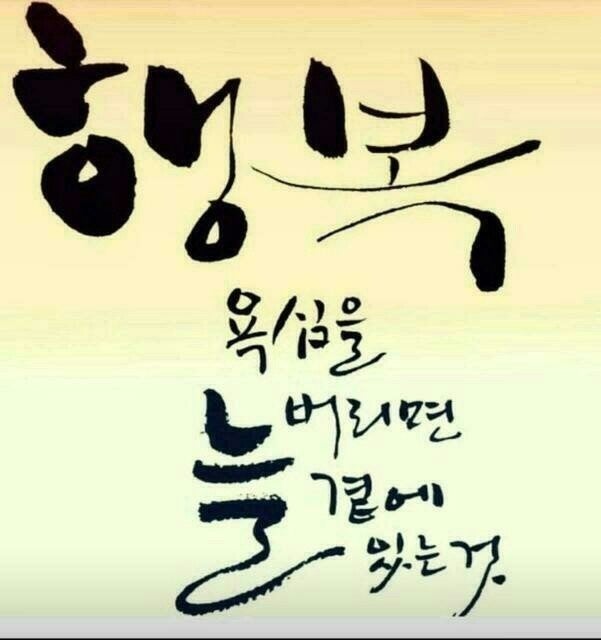 행복
욕심을
버리면
늘 곁에
있는 것